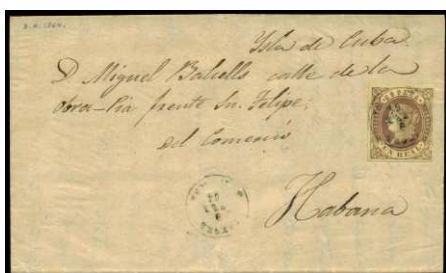 Isla de Cuba
D Miguel Balcells calle de la
obra-Pia frente Sn. Felipe.
del Comercio
Habana
UN REAL